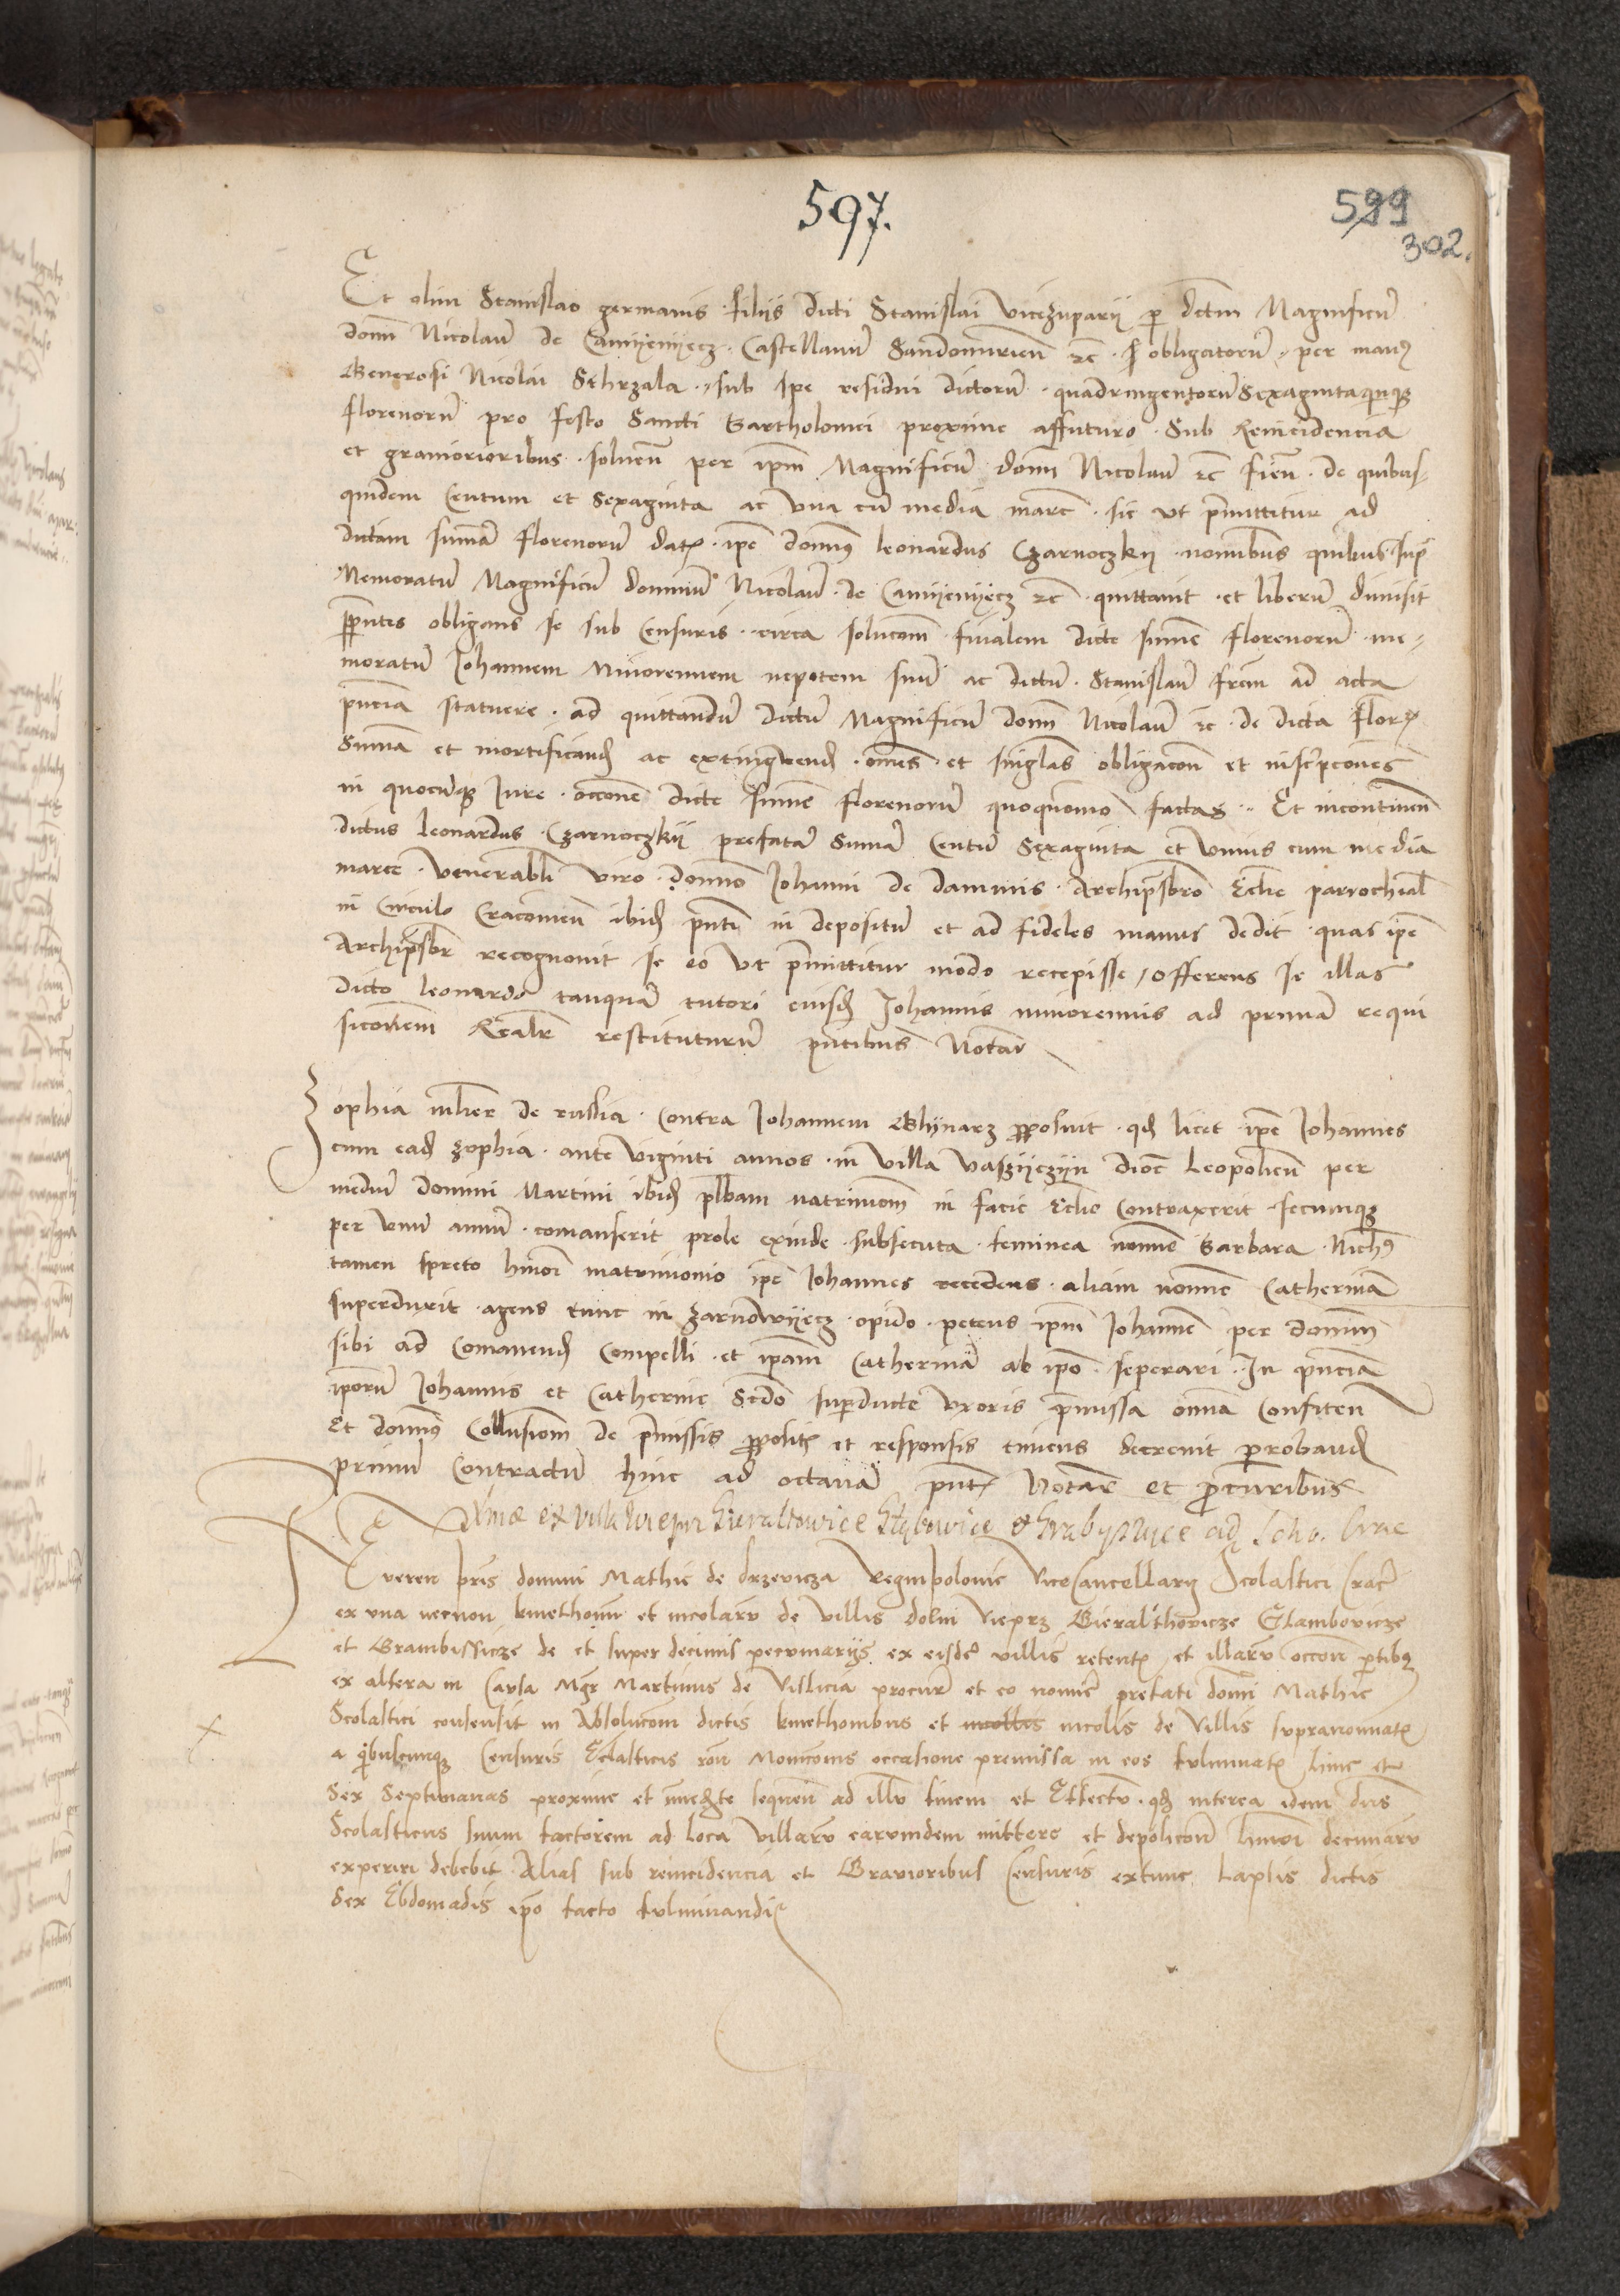 597.
599
302.
Et olim Stanislao germanis filiis dicti Stanislai vicezuparii per dictm Magnificu
domi Nicolau de Camyenyecz Castellanu Sandomirien etc obligatoru per manus
Generosi Nicolai Schrzala sub spe residui dictoru quadringentoru Sexagintaquinque
florenoru pro festo Sancti Bartholomei proxime affuturo Sub Reincidencia
et graviorioribus solven per ipm Magnificu domi Nicolau etc fien de quibus
quidem Centum et Sexaginta ac una cu media marc sic ut pmittitur ad
dictam suma florenoru dat ipe domus leonardus Czarnoczky nominibus quibus sup
Memoratu Magnificu dominu Nicolau de Camyenyecz etc quittavit et liberu dimisit
obligans se sub Censuris circa solucom finalem dicte sume florenoru me
moratu Johannem Minorennem nepotem suu ac dictu Stanislau frem ad acta
pncia statuere ad quittandu dictu Magnificu domi Nicolau etc de dicta flor
Suma et mortificand ac extingwend omes et singlas obligacon et inscripcones
in quocuque Jure occone dicte sume florenoru quoquomo factas Et incontinen
dictus leonardus Czarnoczkii prefata Suma Centu Sexaginta et unius cum media
marce venerabli viro domno Johanni de dammis Archipsbro Eclie parrochial
in Circulo Cracovien ibid pnti in depositu et ad fideles manus dedit quas ipe
Archipsbr recognovit se eo ut pmittitur modo recepisse offerens se illas
dicto leonardo tanqua tutori eiusd Johannis minorennis ad prima requi
sicionem Realr restituturu pntibus Notar
Zophia mlier de russia Contra Johannem Glynarz pposuit qd licet ipe Johannes
cum ead zophia ante viginti annos in villa vaszyczyn dioc leopolien per
mediu domini Martini ibid plbam matrimom in facie Eclie Contraxerit secumque
per unu annu comanserit prole exinde subsecuta feminea nomne Barbara Nichs
tamen spreto hmoi matrimonio ipe Johannes recedens aliam nomne Catherina
superduxit agens tunc in zarnowyecz opido petens ipm Johanne per domim
sibi ad Comanend Compelli et ipam Catherina ab ipo seperari In pncia
iporu Johannis et Catherine Scdo superducte uxoris pmissa omia Confiten
Et domus Collusiom de pmissis ppositis et responsis timens decrevit proband
primu Contractu hinc ad octava pnt Notar et procuribus
ex villa wiepri Gieraltowice Głębowice & Grabyszyce ad
Reveren pris domini Mathie de drzevicza Regni polonie ViceCancellarii Scolastici Crac
ex una necnon kmethonu et incolaru de villis dolni vieprz Gieralthovicze Glambovicze
et Grambissicze de et super decimis pecuniariis ex eisde villis retent et illaru occon ptibus
ex altera in Causa Mgr Martinus de Vislicia procur et eo nomie prefati domi Mathie
Scolastici consensit in Absolucom dictis kmethonibus et incolis incolis de villis supranoiatis
a qibuscunque Censuris Eclasticis occasione premissa in eos fulminatis hinc et
Sex Septimanas proxime et imedte sequen ad illu finem et Effectu qd interea idem dns
Scolasticus suum factorem ad loca villaru earumdem mittere et depolicone hmoi decimaru
experiri debebit Alias sub reincidencia et Gravioribus Censuris extunc lapsis dictis
Sex Ebdomadis ipo facto fulminandis